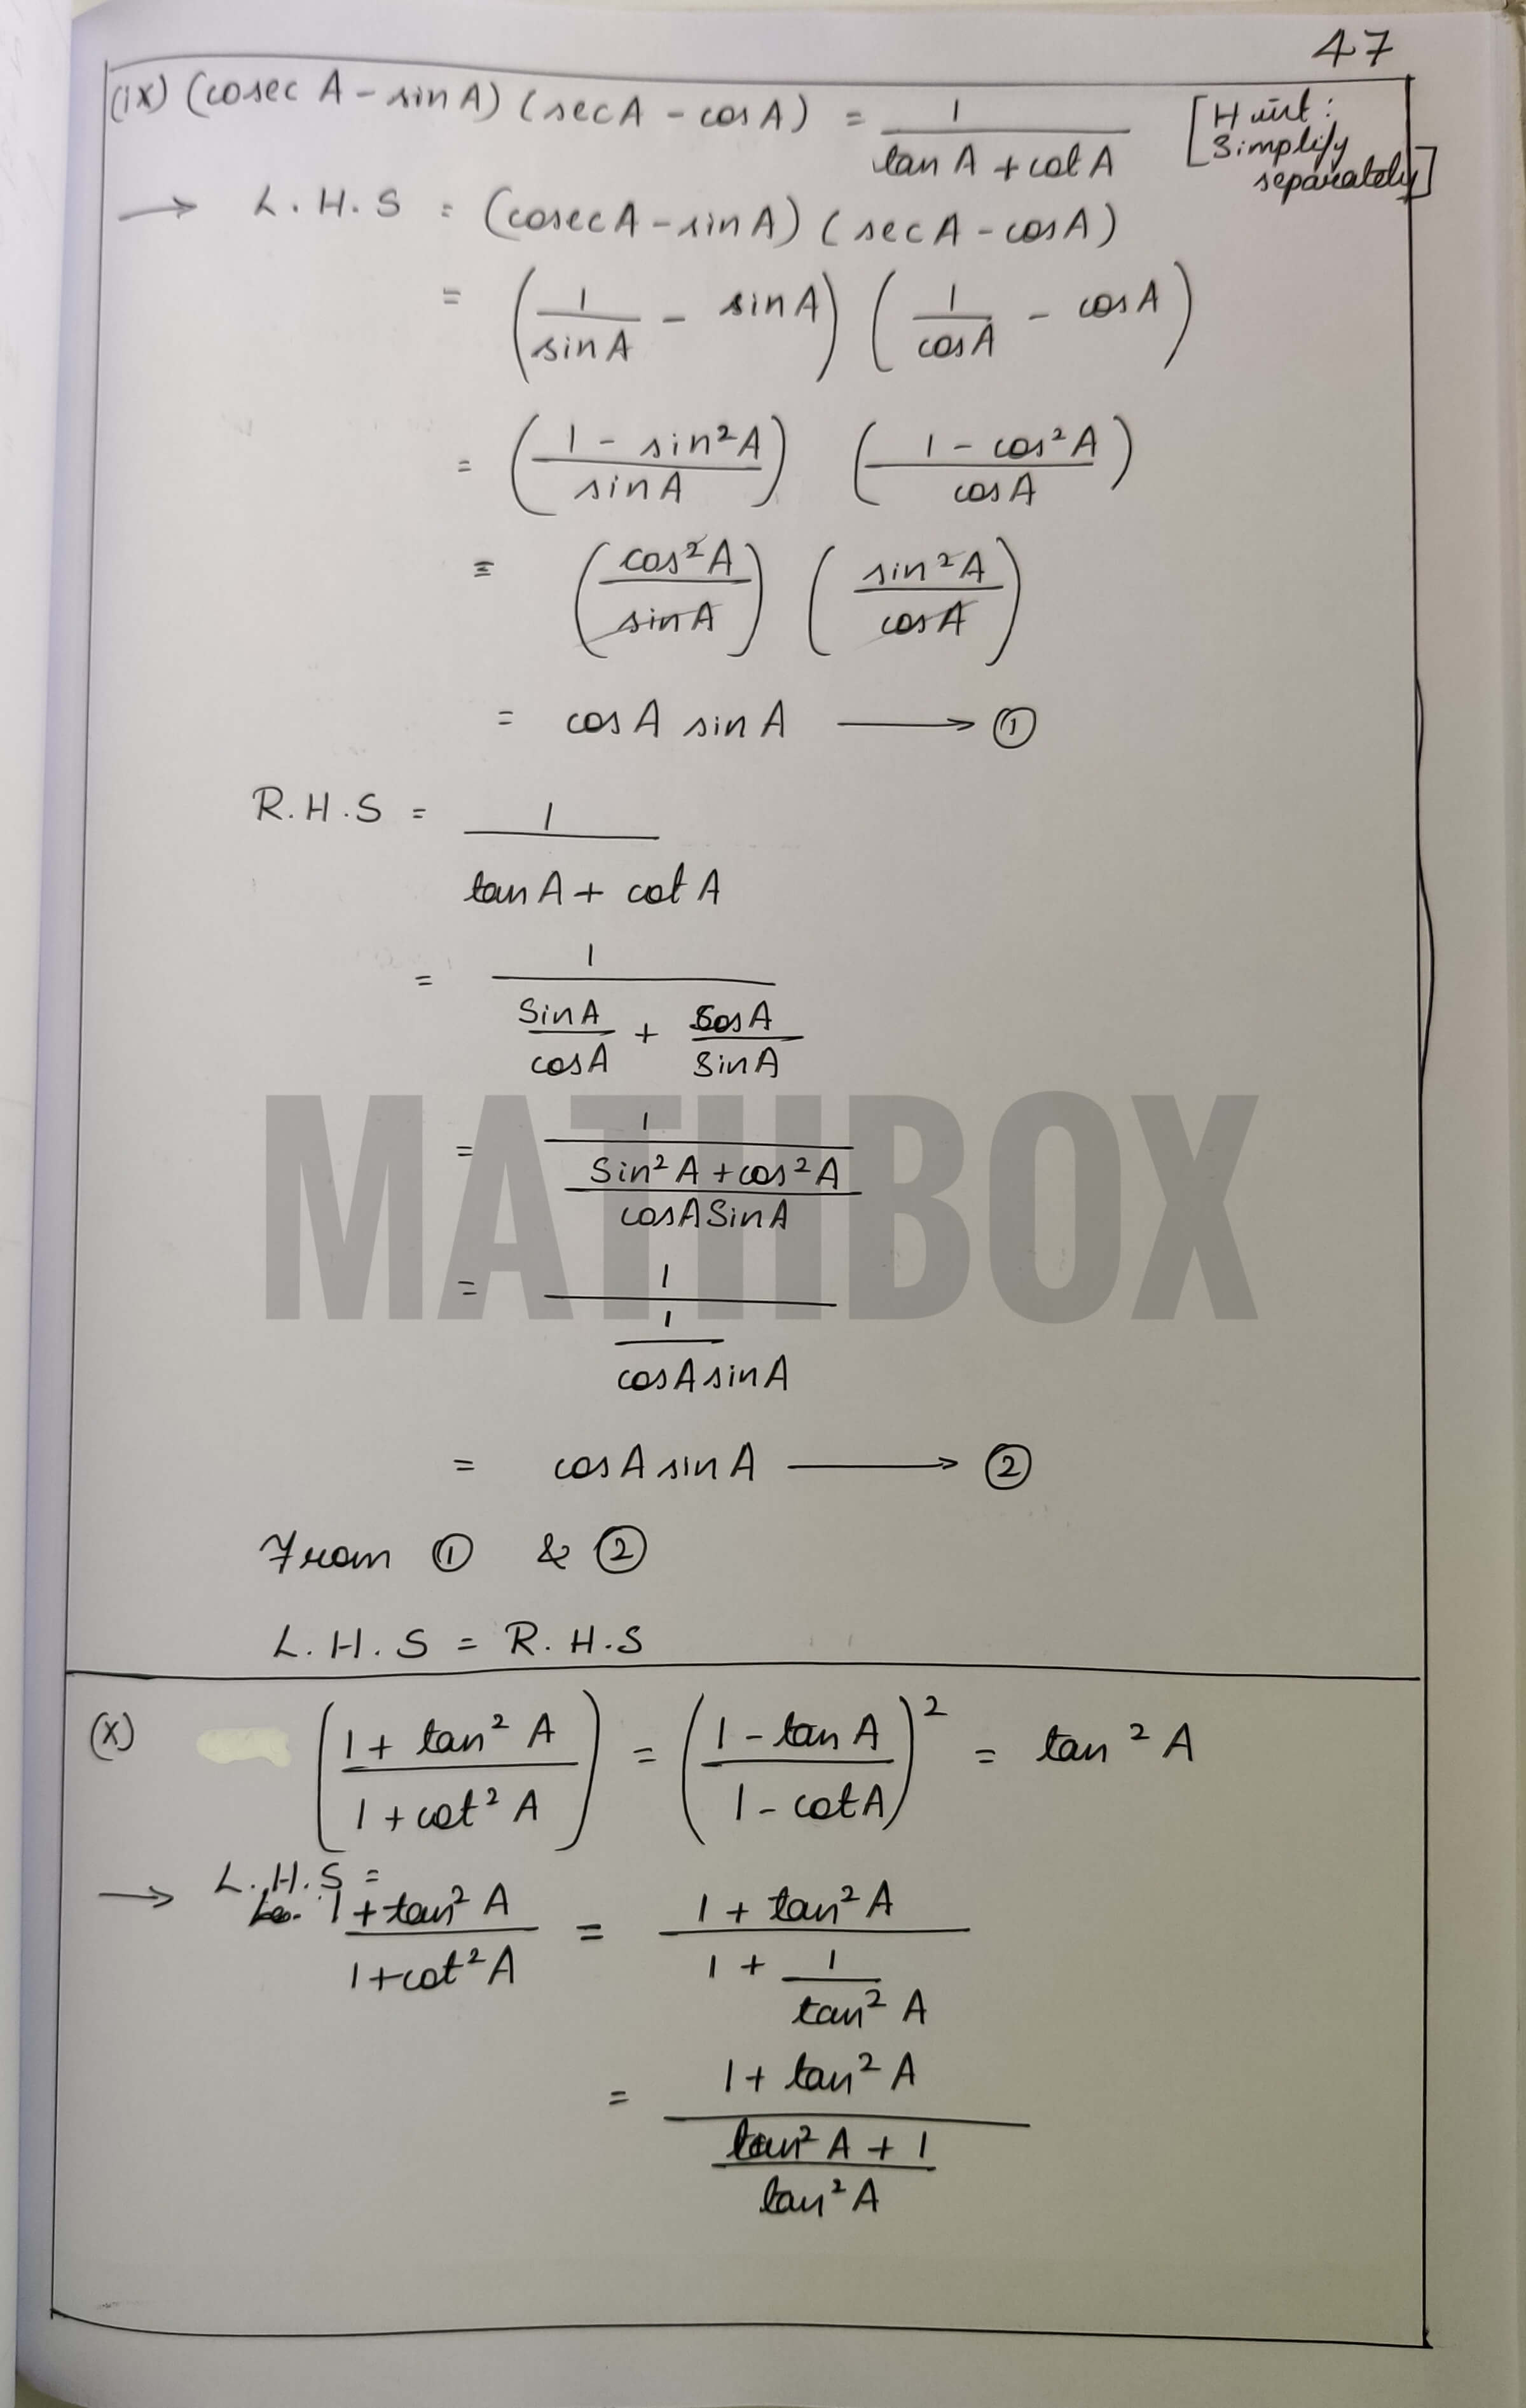 47
(ix) (cosec A - sin A) (sec A - cos A) = 1 / (tan A + cot A) [Hint: Simplify separately]
→ L.H.S = (cosec A - sin A) (sec A - cos A)
= (1/sin A - sin A) (1/cos A - cos A)
= ((1 - sin²A)/sin A) ((1 - cos²A)/cos A)
= (cos²A/sin A) (sin²A/cos A)
= cos A sin A ⟶ ①
R.H.S = 1 / (tan A + cot A)
= 1 / (Sin A/cos A + cos A/Sin A)
= 1 / ((Sin²A + cos²A)/(cos A Sin A))
= 1 / (1/(cos A sin A))
= cos A sin A ⟶ ②
From ① & ②
L.H.S = R.H.S
(x) ((1 + tan²A)/(1 + cot²A)) = ((1 - tan A)/(1 - cot A))² = tan²A
→ L.H.S =
(1 + tan²A)/(1 + cot²A) = (1 + tan²A)/(1 + 1/tan²A)
= (1 + tan²A)/((tan²A + 1)/tan²A)
MATHBOX